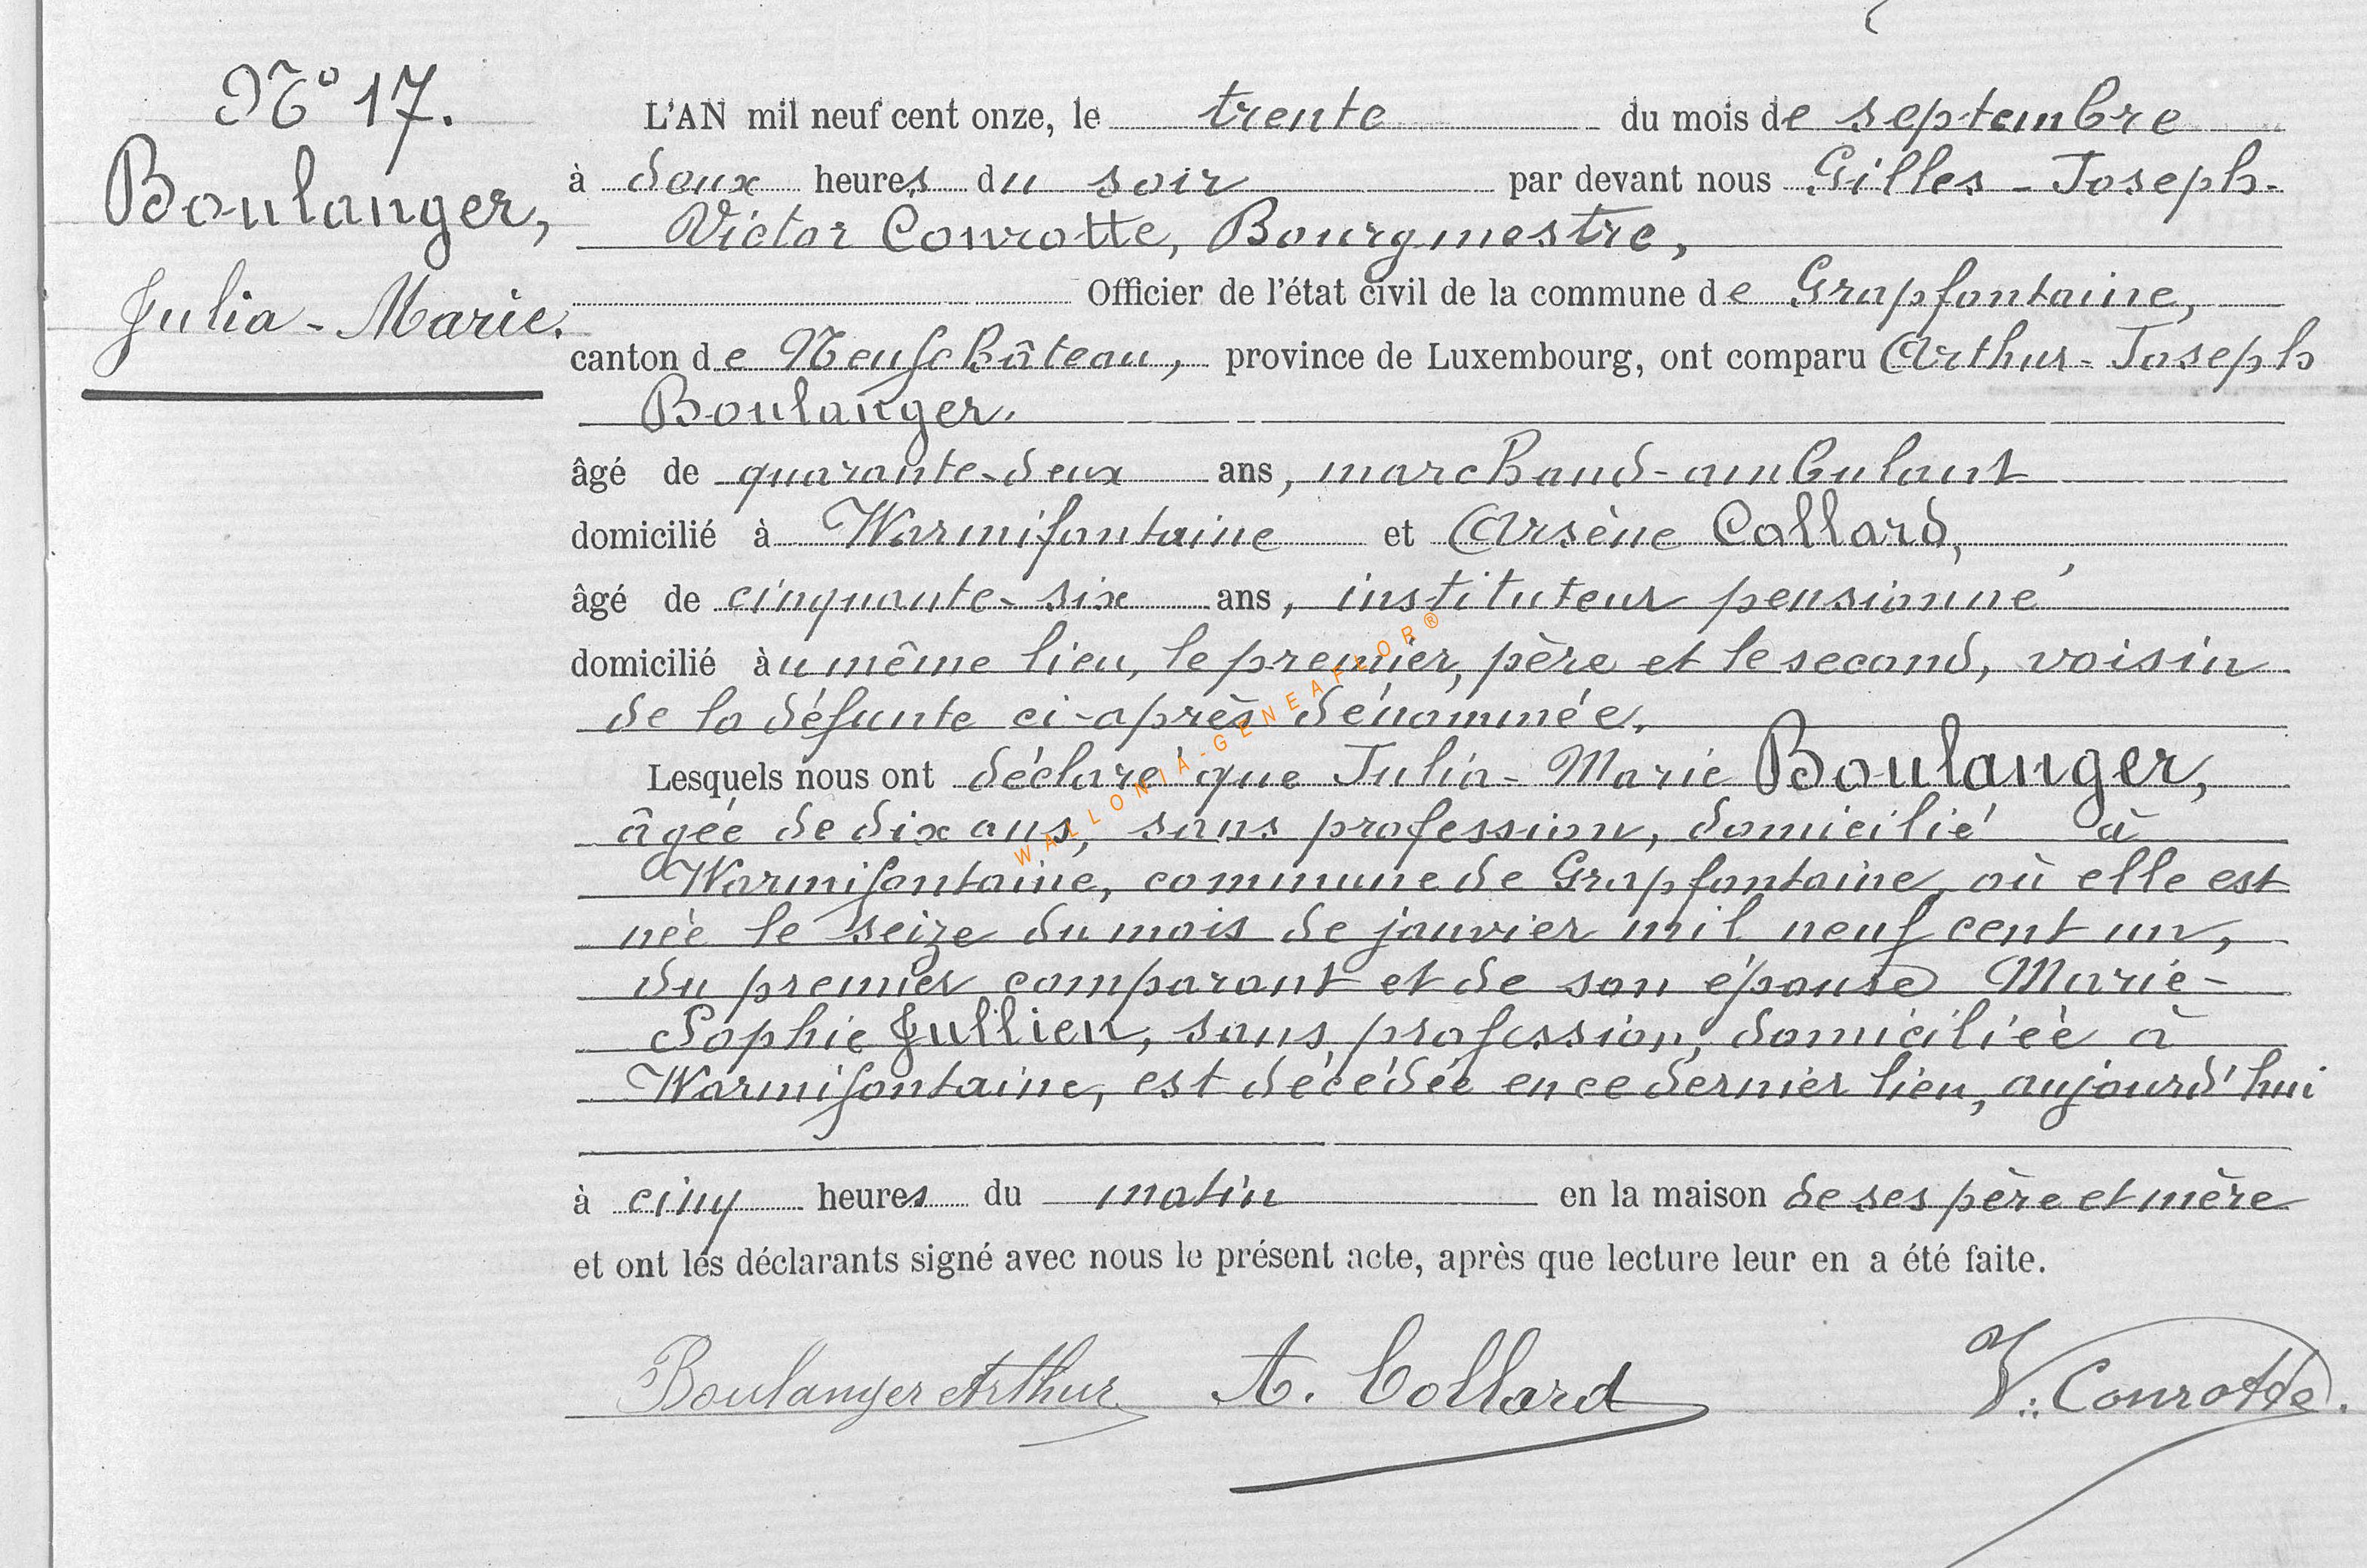 N° 17.
Boulanger,
Julia-Marie.
L'AN mil neuf cent onze, le trente du mois de septembre
à deux heures du soir par devant nous Gilles-Joseph-
Victor Conrotte, Bourgmestre,
Officier de l'état civil de la commune de Grapfontaine,
canton de Neufchâteau, province de Luxembourg, ont comparu Arthur-Joseph
Boulanger,
âgé de quarante-deux ans, marchand-ambulant
domicilié à Warmifontaine et Arsène Collard,
âgé de cinquante-six ans, instituteur pensionné
domicilié au même lieu, le premier, père et le second, voisin
de la défunte ci-après dénommée.
Lesquels nous ont déclaré que Julia-Marie Boulanger,
âgée de dix ans, sans profession, domicilié à
Warmifontaine, commune de Grapfontaine, où elle est
née le seize du mois de janvier mil neuf cent un,
du premier comparant et de son épouse Marie-
Sophie Jullien, sans profession, domiciliée à
Warmifontaine, est décédée en ce dernier lieu, aujourd'hui
à cinq heures du matin en la maison de ses père et mère
et ont les déclarants signé avec nous le présent acte, après que lecture leur en a été faite.
Boulanger Arthur A. Collard V. Conrotte.
WALLONIA-GENEAFLOR®